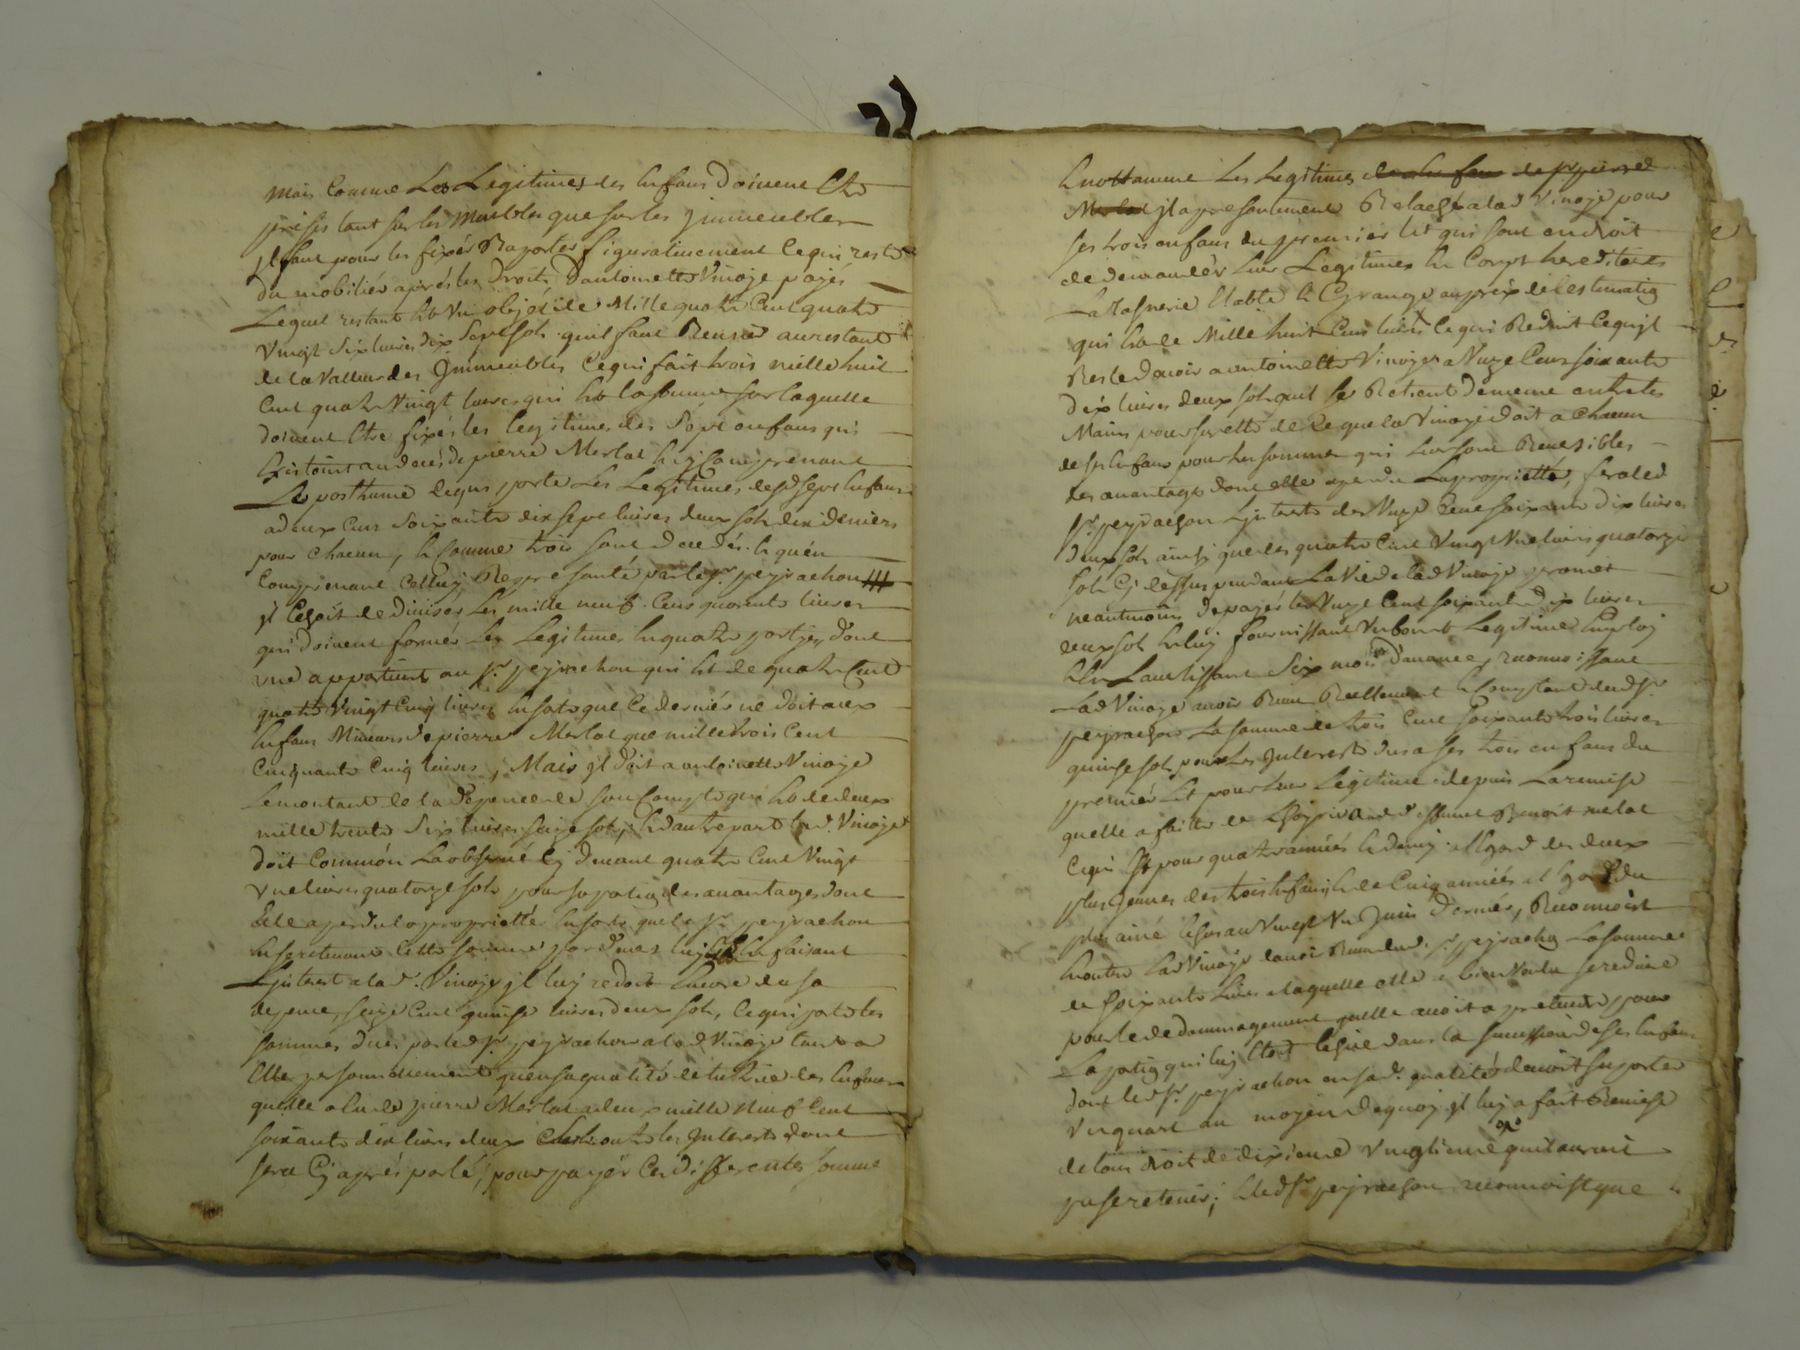 Mais Comme Les Legitimes des Enfans doivent Etre
prises tant sur les Meubles que sur les Immeubles
Il faut pour les fixér Raporter figurativement Ce qui reste
du mobiliér aprés les Droits d'antoinette Vinoje payés
Lequel restant Est Un objet de Mille quatre Cent quatre
Vingt Six livres dix Sept sols quil faut Reunir au restant
de la Valleur des Immeubles Ce qui fait trois mille huit
Cent quatre Vingt livres qui Est la somme sur laquelle
doivent Etre fixés les legitimes des Sept enfans qui
Existoint au decés de pierre Merlat En y Comprenant
Le posthume Ce qui porte Les Legitimes desd sept Enfans
a deux Cens Soixante dix sept livres deux sols dix deniers
pour Chacun, Et Comme trois sont decedés Et quén
Comprenant Celluy Represanté par le sr. peyrachon
Il Echoit de Diviser Les mille neuf Cens quarente livres
qui doivent formér Les Legitimes En quatre parties, dont
une appartient au sr. peyrachon qui Est de quatre Cent
quatre Vingt Cinq livres En sorte que Ce derniér ne doit aux
Enfans Mineurs de pierre Merlat que mille trois Cent
Cinquante Cinq livres, Mais Il doit a antoinette Vinoje
Le montant de la Dépence de son Compte qui Est de deux
mille trente Six livres seize sols, Et d'autre part lad. Vinoje
doit Comme on La observé Cy devant quatre Cent Vingt
Une livres quatorze sols pour sa portion des avantages dont
Elle a perdu la proprietté En sorte que le sr. peyrachon
En se retenant Cette somme par devers luy Et En faisant
L'Interest a lad. Vinoje Il luy redoit Encore de sa
depence, seize Cent quinse livres deux sols, Ce qui porte les
sommes dues par led sr. peyrachon a lad Vinoje tant a
Elle personnellement quen sa qualité de tutrice des Enfans
quelle a Eu de pierre Merlat a deux mille Neuf Cent
soixante dix livres deux sols outre les Interests dont
sera Cy aprés parlé, pour payér Ces differentes somme
Et nottament Les Legitimes
Il a presentement Relaché a lad Vinoje pour
ses trois enfans du premiér lit qui sont en droit
de demandér Leur Legitimes En Corps hereditaires
Etable Et Grange au prix de l'estimation
qui Est de Mille huit Cens livres Ce qui Reduit Ce quil
Reste devoir a antoinette Vinoje a Unze Cens soixante
dix livres deux sols quil se Retient de meme entre les
Mains pour surette de Ce que lad Vinoje doit a Chacun
de ses Enfans pour les sommes qui leur sont Reversibles
des avantages dont elle a perdu La proprietté, fera led
sr. peyrachon L'Interest des Unze Cent soixante dix livres
deux sols ainsy que les quatre Cent Vingt Une livres quatorze
sols Cy dessus pendant La Vie de lad Vinoje promet
neantmoins de payér les Unze Cent soixante dix livres
deux sols En luy fournissant Un bon Et Legitime Employ
Et En L'avertissant Six mois d'avance, reconnoissant
Lad Vinoje avoir Reçu Reellement Et Comptant dud sr.
peyrachon La somme de trois Cent soixante trois livres
quinse sols pour Les Interests dus a ses trois enfans du
premiér Lit pour Leur Legitime depuis La remise
quelle a faitte de
Ce qui Est pour quatre années Et demy a l'Egard des deux
plus jeunes des trois Enfans, Et de Cinq années a l'Egard du
plus ainé Echus au Vingt Un Juin Dernier, Reconnoist
En outre lad Vinoje avoir Reçu dud. sr. peyrachon La somme
de soixante livres a laquelle elle a bien Voulu se reduire
pour le dedommagement quelle avoit a pretendre pour
La portion qui luy Etoit Echue dans la succession de ses Enfans
dont led sr. peyrachon en sad. qualité devoit suporter
Un quart au moyen de quoy Il luy a fait Remise
de tous droit de dixieme Vingtieme quil auroit
pu se retenir; Et led sr. peyrachon reconnoist que